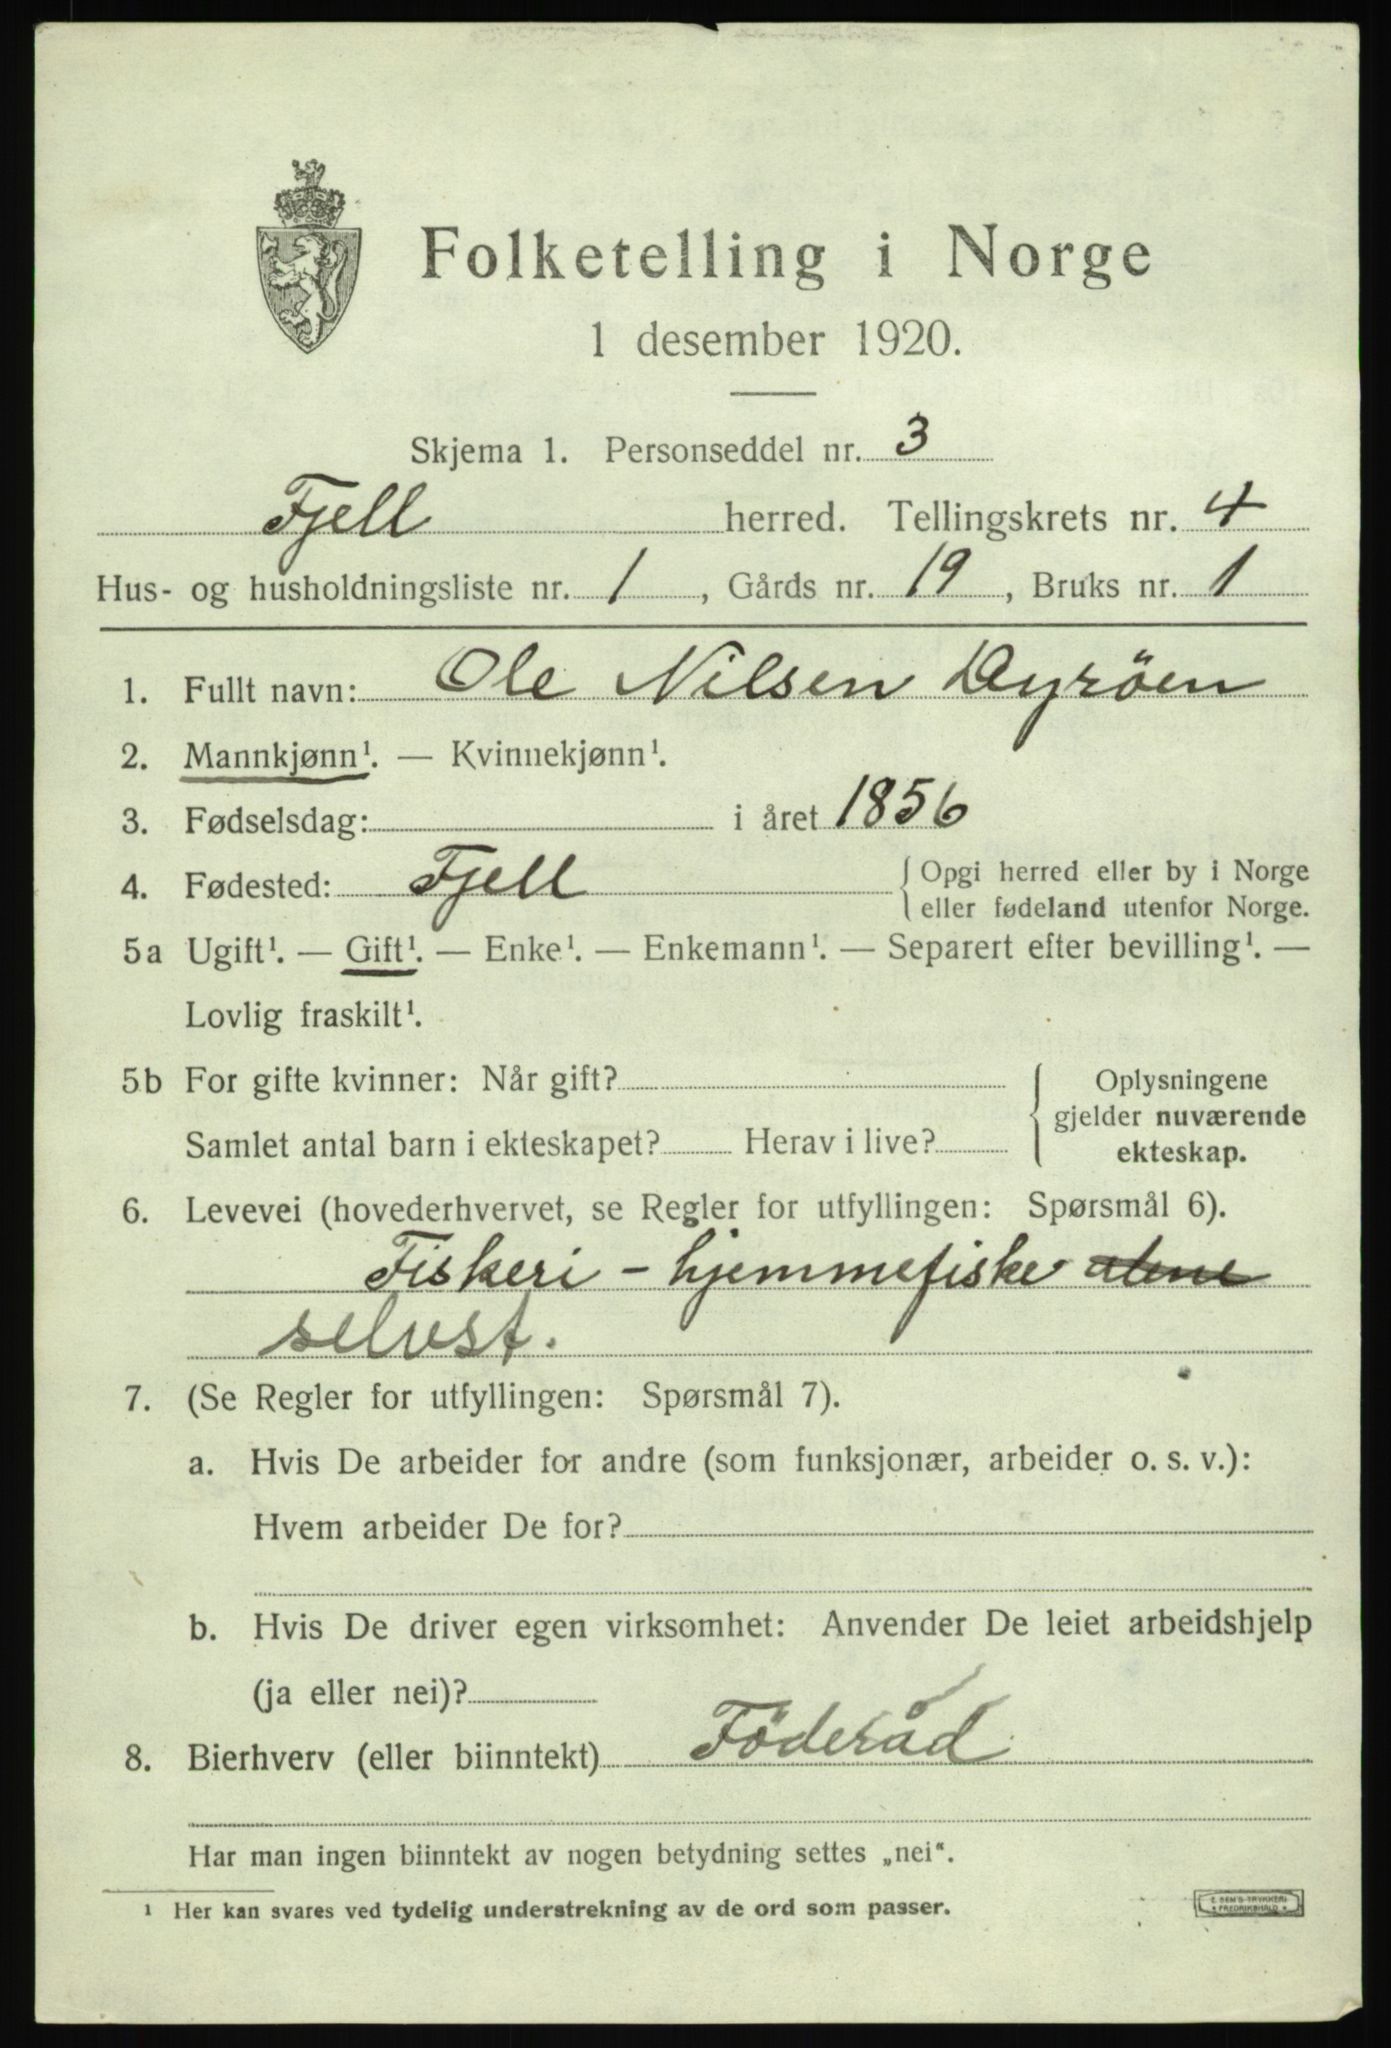 Folketelling i Norge
1 desember 1920.
Skjema 1. Personseddel nr. 3
Fjell herred. Tellingskrets nr. 4
Hus- og husholdningsliste nr. 1, Gårds nr. 19, Bruks nr. 1
1. Fullt navn: Ole Nilsen Dyröen
2. Mannkjønn¹. — Kvinnekjønn¹.
3. Fødselsdag: i året 1856
4. Fødested: Fjell { Opgi herred eller by i Norge
eller fødeland utenfor Norge.
5a Ugift¹. — Gift¹. — Enke¹. — Enkemann¹. — Separert efter bevilling¹. —
Lovlig fraskilt¹.
5b For gifte kvinner: Når gift? { Oplysningene
gjelder nuværende
Samlet antal barn i ekteskapet? Herav i live? ekteskap.
6. Levevei (hovederhvervet, se Regler for utfyllingen: Spørsmål 6).
Fiskeri - hjemmefiske alene
selvst.
7. (Se Regler for utfyllingen: Spørsmål 7).
a. Hvis De arbeider for andre (som funksjonær, arbeider o. s. v.):
Hvem arbeider De for?
b. Hvis De driver egen virksomhet: Anvender De leiet arbeidshjelp
(ja eller nei)?
8. Bierhverv (eller biinntekt) Föderåd
Har man ingen biinntekt av nogen betydning settes „nei“.
¹ Her kan svares ved tydelig understrekning av de ord som passer.
E. SEM'S TRYKKERI
FREDRIKSHALD